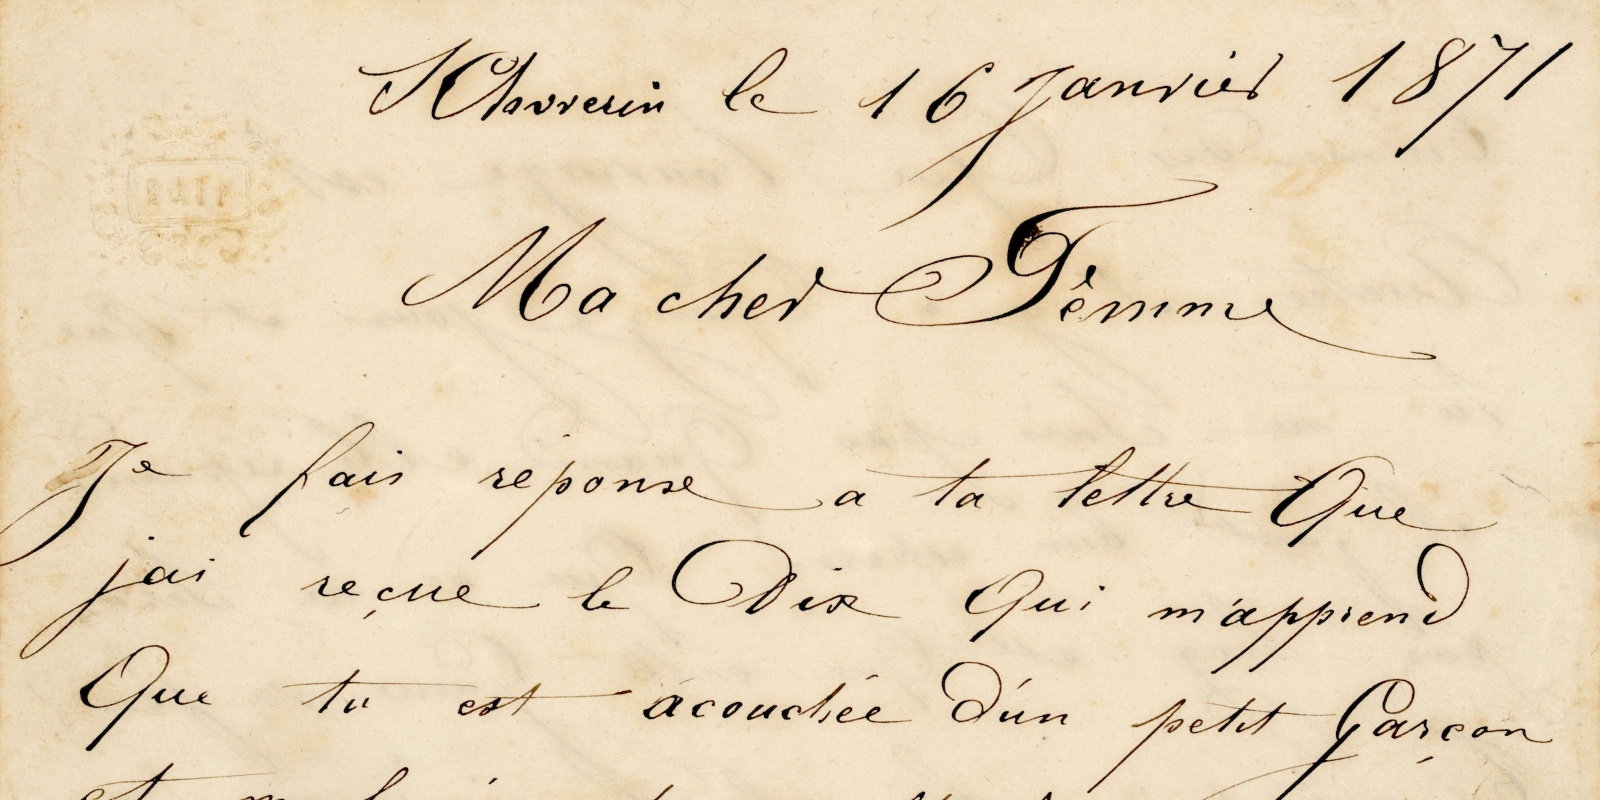 Schwerin le 16 Janvier 1871
Ma cher Fèmme
Je fais réponse a ta lettre Que
jai reçue le Dix Qui m'apprend
Que tu est acouchée d'un petit Garçon
et